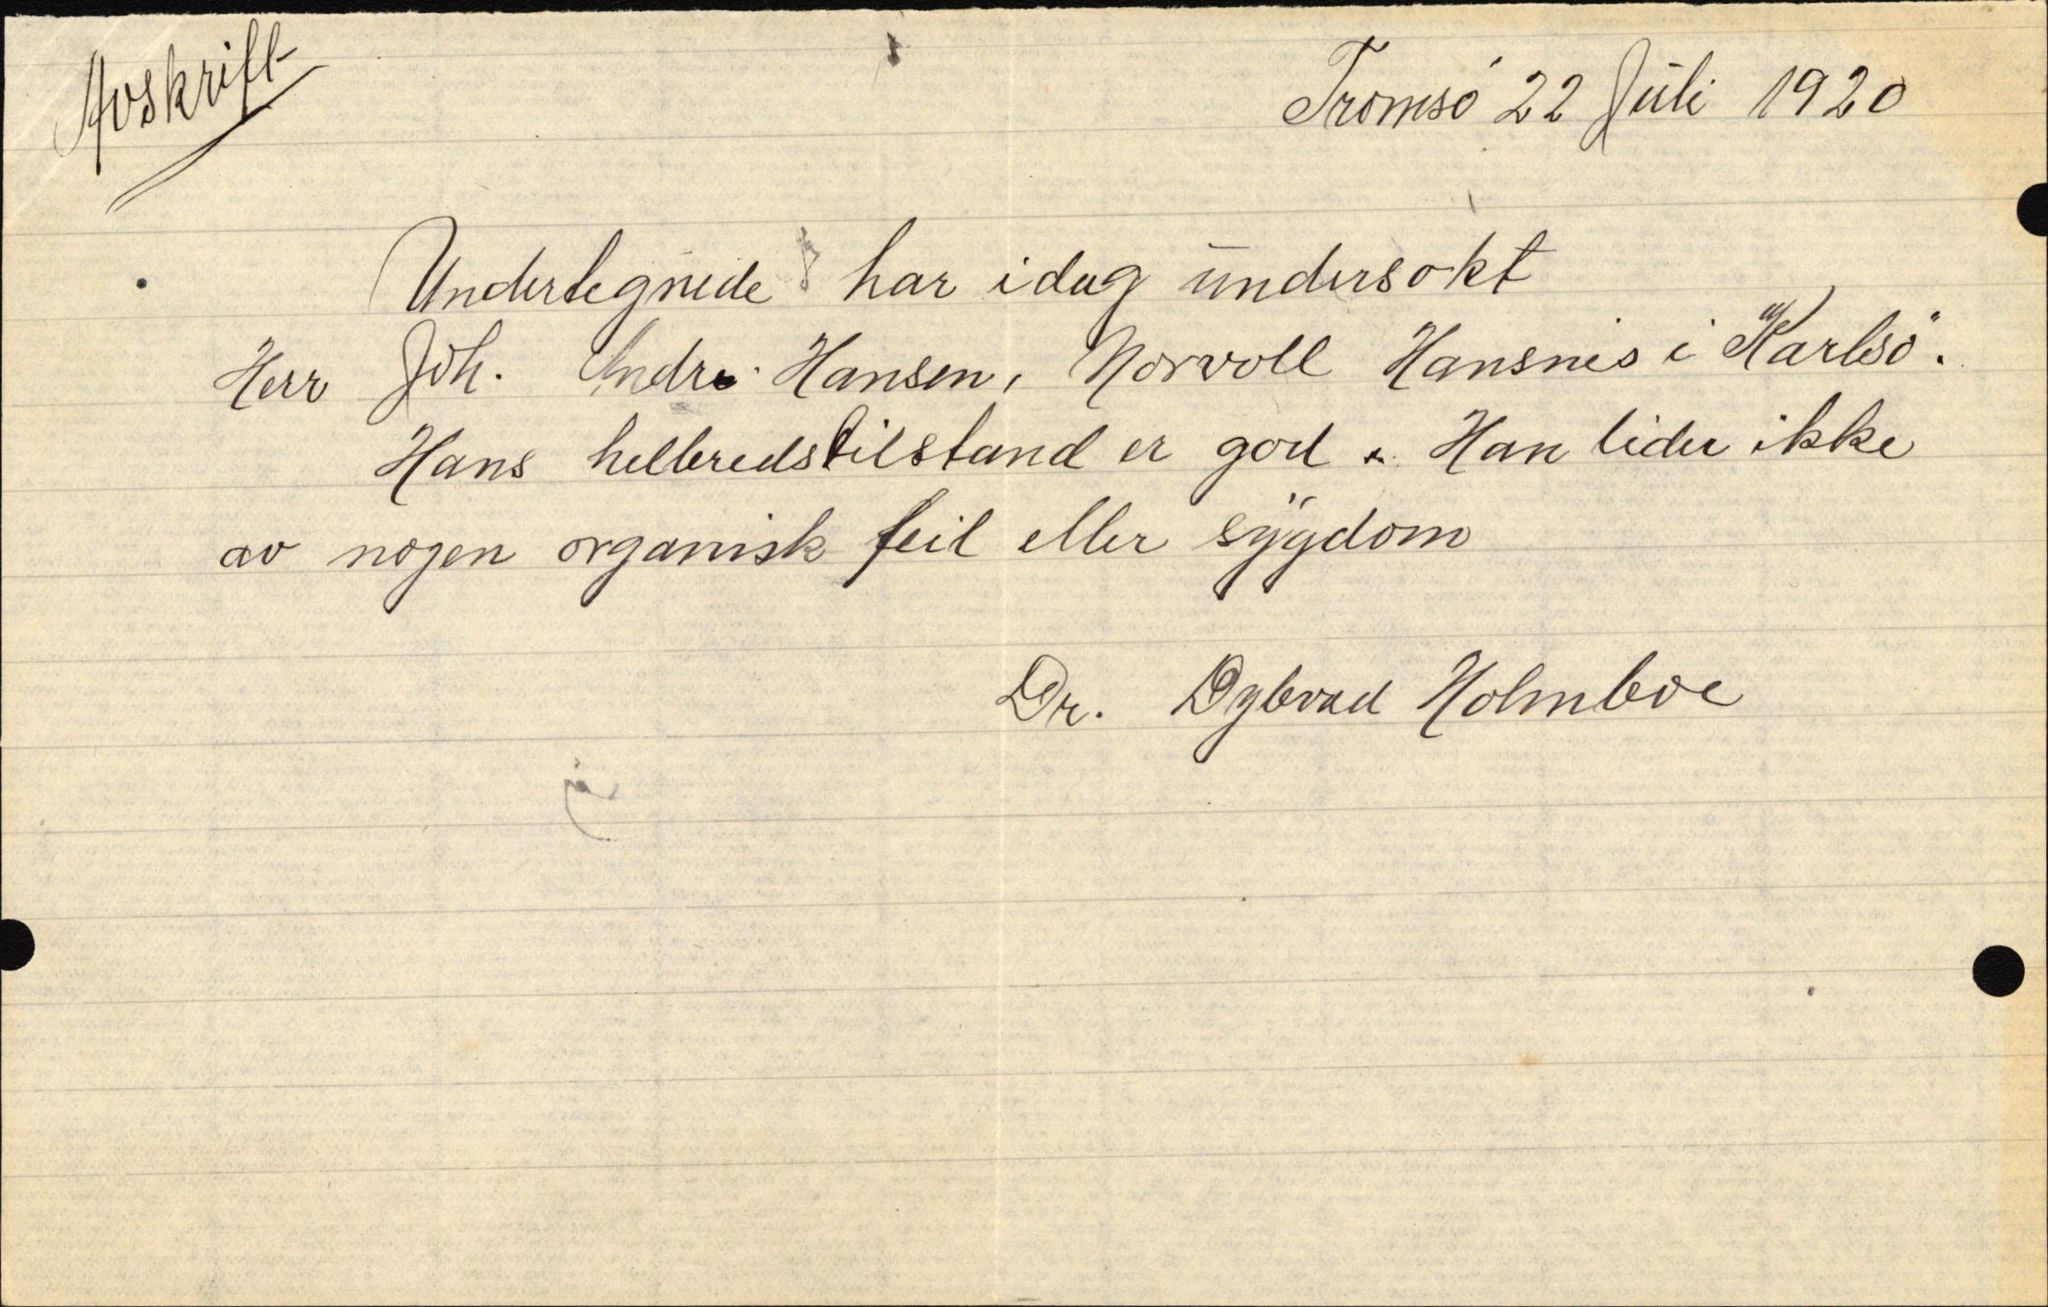 Avskrift
Tromsö 22 Juli 1920
Undertegnede har idag undersokt
Herr Joh. Andr. Hansen, Norvoll Hansnes i Karlsö.
Hans helbredstilstand er god. Han lider ikke
av nogen organisk feil eller sygdom
Dr. Dybvad Holmboe